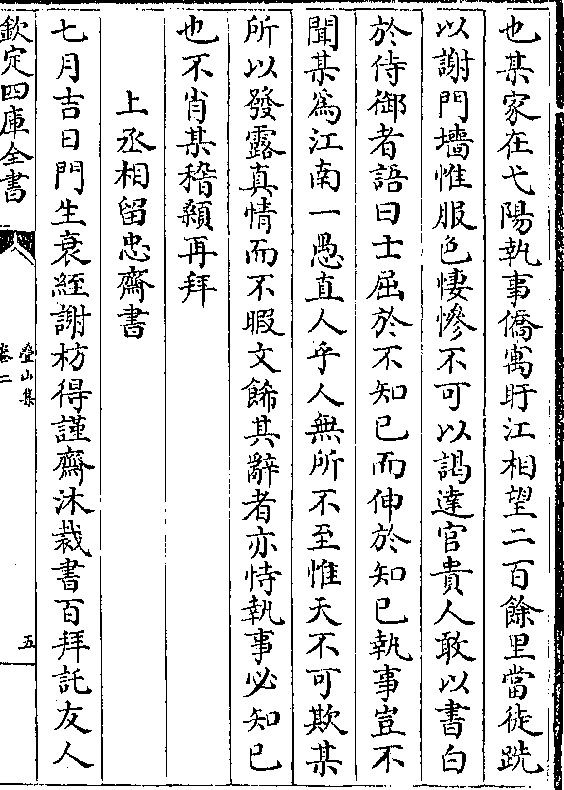 也某家在弋陽執事僑寓盱江相望二百餘里當徒跣
以謝門墻惟服色悽慘不可以謁達官貴人敢以書白
於侍御者語曰士屈於不知已而伸於知已執事豈不
聞某爲江南一愚直人乎人無所不至惟天不可欺某
所以發露真情而不暇文餙其辭者亦恃執事必知已
也不肖某稽顙再拜
上丞相留忠齋書
七月吉日門生衰絰謝枋得謹齋沐裁書百拜託友人
欽定四庫全書
疊山集
卷二
五